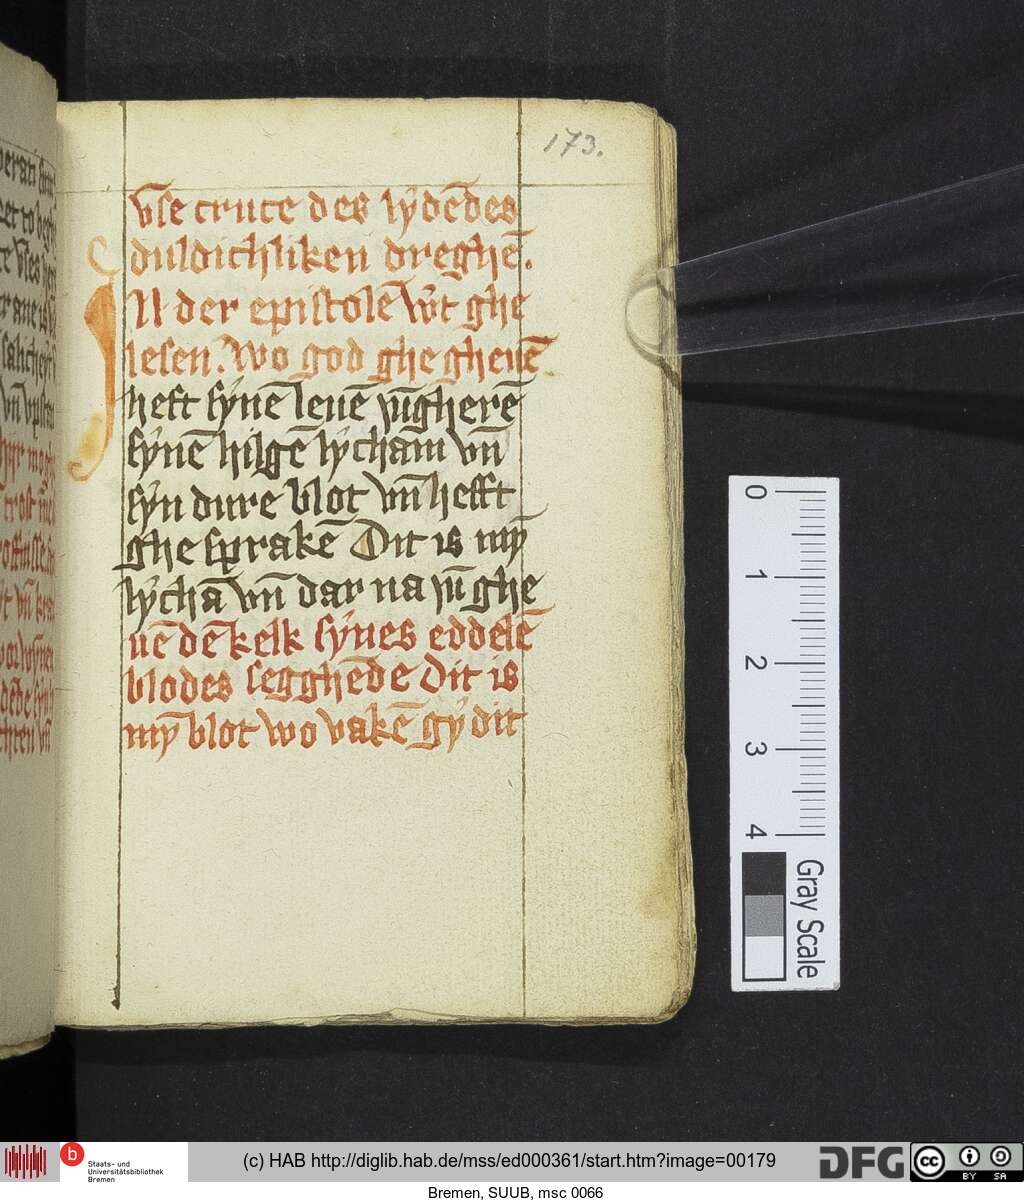 173.
vn̄se cruce des lydēdes
duldichliken dreghē.
IN der epistolē wt ghe
lesen. Wo god ghe gheuē
heft synē leuē yūgherē
synē hilgē lychām vn̄
syn dure blot vn̄ hefft
ghe sprakē Dit is mȳ
lychā vn̄ dar na yū ghe
uē dē kelk synes eddelē
blodes segghēde Dit is
mȳ blot wo vakē gy dit
0
1
2
3
4
Gray Scale
b Staats- und
Universitätsbibliothek
Bremen
(c) HAB http://diglib.hab.de/mss/ed000361/start.htm?image=00179
DFG
cc BY SA
Bremen, SUUB, msc 0066